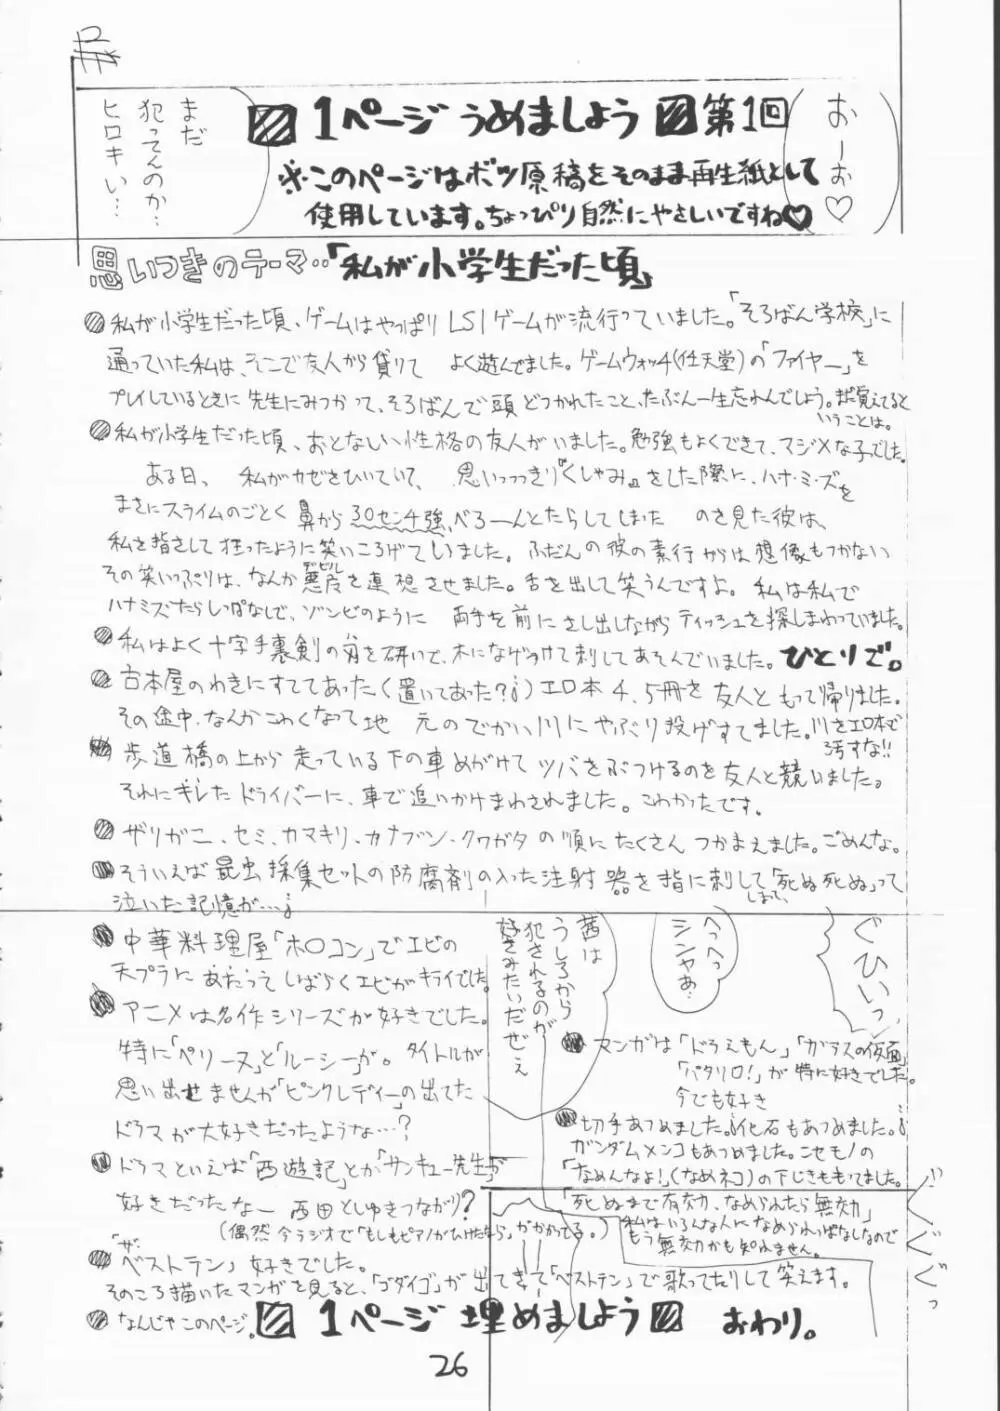 まだ
犯ってんのか…
ヒロキい…
おーお♡
1ページうめましょう 第1回
※このページはボツ原稿をそのまま再生紙として
使用しています。ちょっぴり自然にやさしいですね♡
思いつきのテーマ・・「私が小学生だった頃」
私が小学生だった頃、ゲームはやっぱりLSIゲームが流行っていました。「そろばん学校」に
通っていた私は、そこで友人から貸りて よく遊んでました。ゲームウォッチ(任天堂)の「ファイヤー」を
プレイしているときに先生にみつかって、そろばんで頭どつかれたこと、たぶん一生忘れんでしょう。まだ覚えてると
いうことは。
私が小学生だった頃、おとなしい性格の友人がいました。勉強もよくできて、マジメな子でした。
ある日、 私がカゼをひいていて、 思いっっきり『くしゃみ』をした際に、ハナ・ミ・ズを
まさにスライムのごとく鼻から30センチ強、べろーんとたらしてしまった のを見た彼は、
私を指さして狂ったように笑いころげていました。ふだんの彼の素行からは想像もつかない
その笑いっぷりは、なんか悪魔を連想させました。舌を出して笑うんですよ。私は私で
デビル
ハナミズたらしっぱなしで、ゾンビのように 両手を前にさし出しながらティッシュを探しまわっていました。
私はよく十字手裏剣の刃を研いで、木になげつけて刺してあそんでいました。ひとりで。
古本屋のわきにすててあった(置いてあった?!)エロ本4、5冊を友人ともって帰りました。
その途中、なんかこわくなって地 元のでかい川にやぶり投げすてました。川をエロ本で
汚すな!!
歩道橋の上から走っている下の車めがけてツバをぶつけるのを友人と競いました。
それにキレたドライバーに、車で追いかけまわされました。こわかったです。
ザリガニ、セミ、カマキリ、カナブン・クワガタの順にたくさんつかまえました。ごめんな。
そういえば昆虫採集セットの防腐剤の入った注射器を指に刺して「死ぬ死ぬ」って
しまって、
泣いた記憶が…!
中華料理屋「ホ〇コン」でエビの
天プラにあたってしばらくエビがキライでした。
アニメは名作シリーズが好きでした。
特に「ペリーヌ」と「ルーシー」が。タイトルが
思い出せませんが「ピンクレディー」の出てた
ドラマが大好きだったような…?
ドラマといえば「西遊記」とか「サンキュー先生」が
好きだったなー 西田としゆきつながり?
(偶然今ラジオで「もしもピアノがひけたなら」がかかってる。)
「ザ・
ベストテン」好きでした。
そのころ描いたマンガを見ると、「ゴダイゴ」が出てきて「ベストテン」で歌ってたりして笑えます。
なんじゃこのページ。
茜は
うしろから
犯されるのが
好きみたいだぜぇ
へっへっ
シンヤぁ…
ぐひいっ
マンガは「ドラえもん」「ガラスの仮面」
「パタリロ!」が特に好きでした。
今でも好き
切手あつめました。化石もあつめました。
ガンダムメンコもあつめました。ニセモノの
「なめんなよ!」(なめネコ)の下じきももってました。
「死ぬまで有効、なめられたら無効」
私はいろんな人になめられっぱなしなので
もう無効かも知れません。
ぐぐぐっ
1ページ埋めましょう おわり。
26